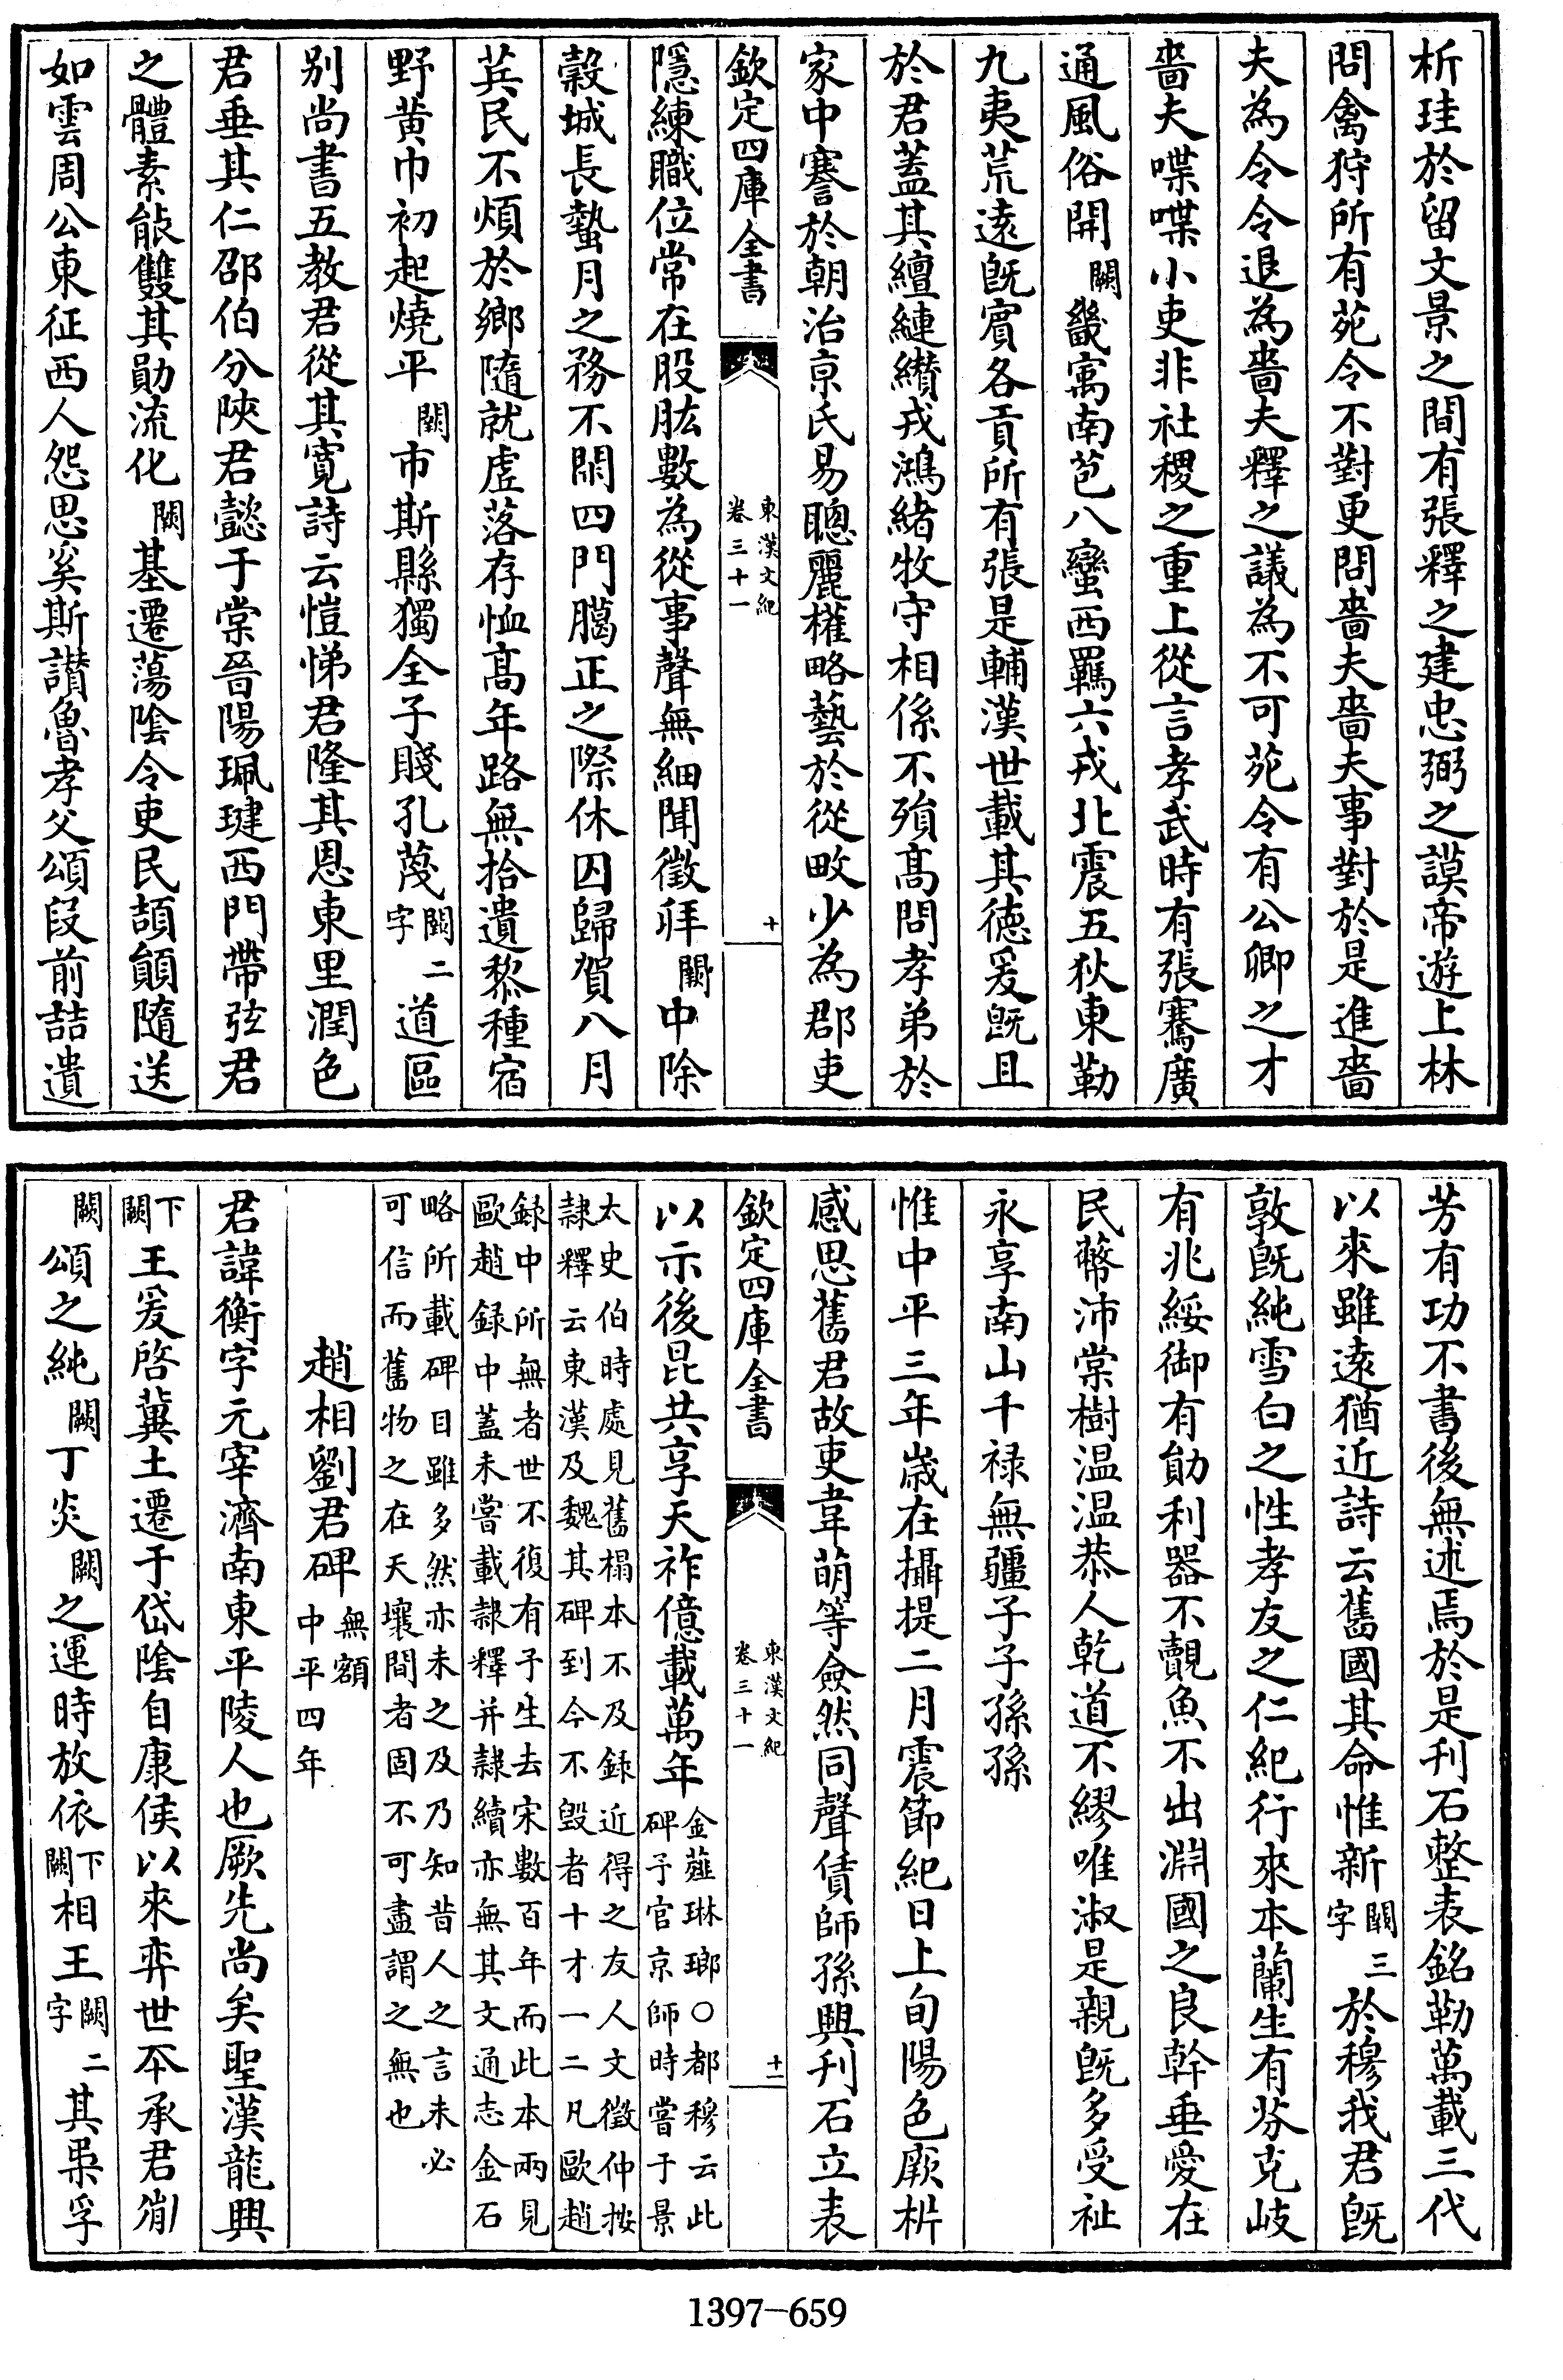 析珪於留文景之間有張釋之建忠弼之謨帝遊上林
問禽狩所有苑令不對更問嗇夫嗇夫事對於是進嗇
夫為令令退為嗇夫釋之議為不可苑令有公卿之才
嗇夫喋喋小吏非社稷之重上從言孝武時有張騫廣
通風俗開闕畿寓南苞八蠻西羈六戎北震五狄東勒
九夷荒遠旣賔各貢所有張是輔漢世載其德爰旣且
於君蓋其纏縺纘戎鴻緒牧守相係不殞髙問孝弟於
家中謇於朝治京氏易聰麗權略藝於從畋少為郡吏
欽定四庫全書
東漢文紀
卷三十一
十
隱練職位常在股肱數為從事聲無細聞徵拜闕中除
糓城長蠶月之務不閉四門臈正之際休囚歸賀八月
䇲民不煩於鄉隨就虛落存恤髙年路無拾遺黎種宿
野黄巾初起燒平闕市斯縣獨全子賤孔蔑闕二字道區
别尚書五教君從其寛詩云愷悌君隆其恩東里潤色
君垂其仁邵伯分陜君懿于棠晉陽珮瑋西門帶弦君
之體素能雙其勛流化闕基遷蕩隂令吏民頡頏隨送
如雲周公東征西人怨思奚斯讃魯孝父頌段前喆遺
芳有功不書後無述焉於是刋石整表銘勒萬載三代
以來雖遠猶近詩云舊國其命惟新闕三字於穆我君旣
敦旣純雪白之性孝友之仁紀行來本蘭生有芬克岐
有兆綏御有勛利器不覿魚不出淵國之良幹垂愛在
民蔽沛棠樹温温恭人乾道不繆唯淑是親旣多受祉
永享南山千禄無疆子子孫孫
惟中平三年歳在攝提二月震節紀日上旬陽色厥枡
感思舊君故吏韋萌等僉然同聲賃師孫興刋石立表
欽定四庫全書
東漢文紀
卷三十一
十一
以示後昆共享天祚億載萬年金薤琳瑯○都穆云此
碑予官京師時嘗于景
太史伯時處見舊榻本不及録近得之友人文徵仲按
隷釋云東漢及魏其碑到今不毀者十才一二凡歐趙
録中所無者世不復有予生去宋數百年而此本兩見
歐趙録中蓋未嘗載隷釋并隷續亦無其文通志金石
略所載碑目雖多然亦未之及乃知昔人之言未必
可信而舊物之在天壤間者固不可盡謂之無也
趙相劉君碑無額
中平四年
君諱衡字元宰濟南東平陵人也厥先尚矣聖漢龍興
下闕王爰啓冀土遷于岱隂自康侯以來弈世丕承君䏍
闕頌之純闕丁炎闕之運時放依下闕相王闕二字其杲孚
1397-659